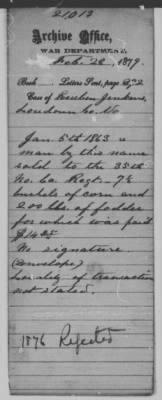 21013
Archive Office,
WAR DEPARTMENT,
Feb. 28, 1879.
Book Letters Sent, page 292
Case of Reuben Jenkins,
Loudoun Co. Va
Jan. 5th 1863 a
man by this name
sold to the 35th
Va. Regt. 7½
bushels of corn and
200 lbs. of fodder
for which was paid
No signature
(envelope)
Locality of transaction
not stated.
1876 Rejected